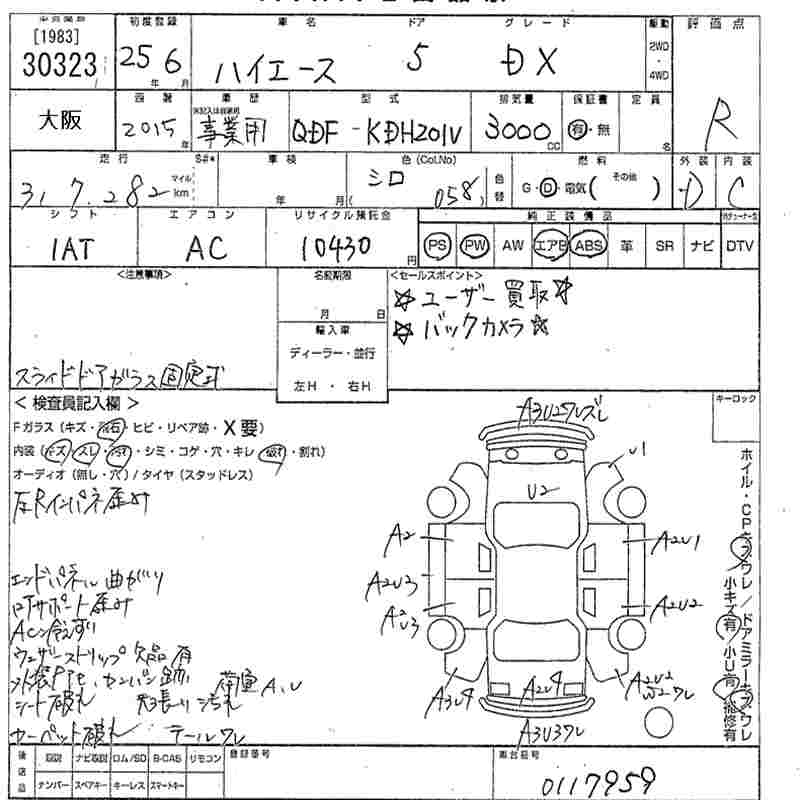 [1983]
30323
初度登録 車名 ドア グレード 駆動 評価点
25年 6月 ハイエース 5 DX 2WD・4WD R
大阪
車歴 型式 排気量 保証書 定員
2015年 事業用 QDF-KDH201V 3000cc 有・無 名
走行 車検 色(Col.No) 燃料 外装 内装
317,282 マイル km 年 月 シロ (058) 色替 G・D・電気( その他 ) D C
シフト エアコン リサイクル預託金 純正装備品
IAT AC 10430円 PS PW AW エアB ABS 革 SR ナビ DTV
<注意事項> 名変期限 <セールスポイント>
月 日
☆ユーザー買取☆
☆バックカメラ☆
輸入車
ディーラー・並行
左H・右H
スライドドアガラス固定式
<検査員記入欄> キーロック
Fガラス(キズ・飛石・ヒビ・リペア跡・X要)
内装(キズ・スレ・汚れ・シミ・コゲ・穴・キレ・破れ・割れ)
オーディオ(無し・穴)/タイヤ(スタッドレス)
左Rインパネ歪み
エンドパネル曲がり
ロアサポート歪み
ACン冷えず
ウェザーストリップ欠品有
荷室A、U
シート破れ 天張り汚れ
カーペット破れ テールワレ
A3U2ワレズレ
U1
U2
A2
A2U1
A2U3
A2U3
A2U2
A3U4
A2U4
A2U2
W2ワレ
A3U3ワレ
ホイル・CPキズワレ/ドアミラーキズワレ
小キズ有 小U有 補修有
後店品 取説 ナビ取説 ロム/SD B-CAS リモコン 登録番号 車台番号
ナンバー スペアキー キーレス スマートキー
0117959